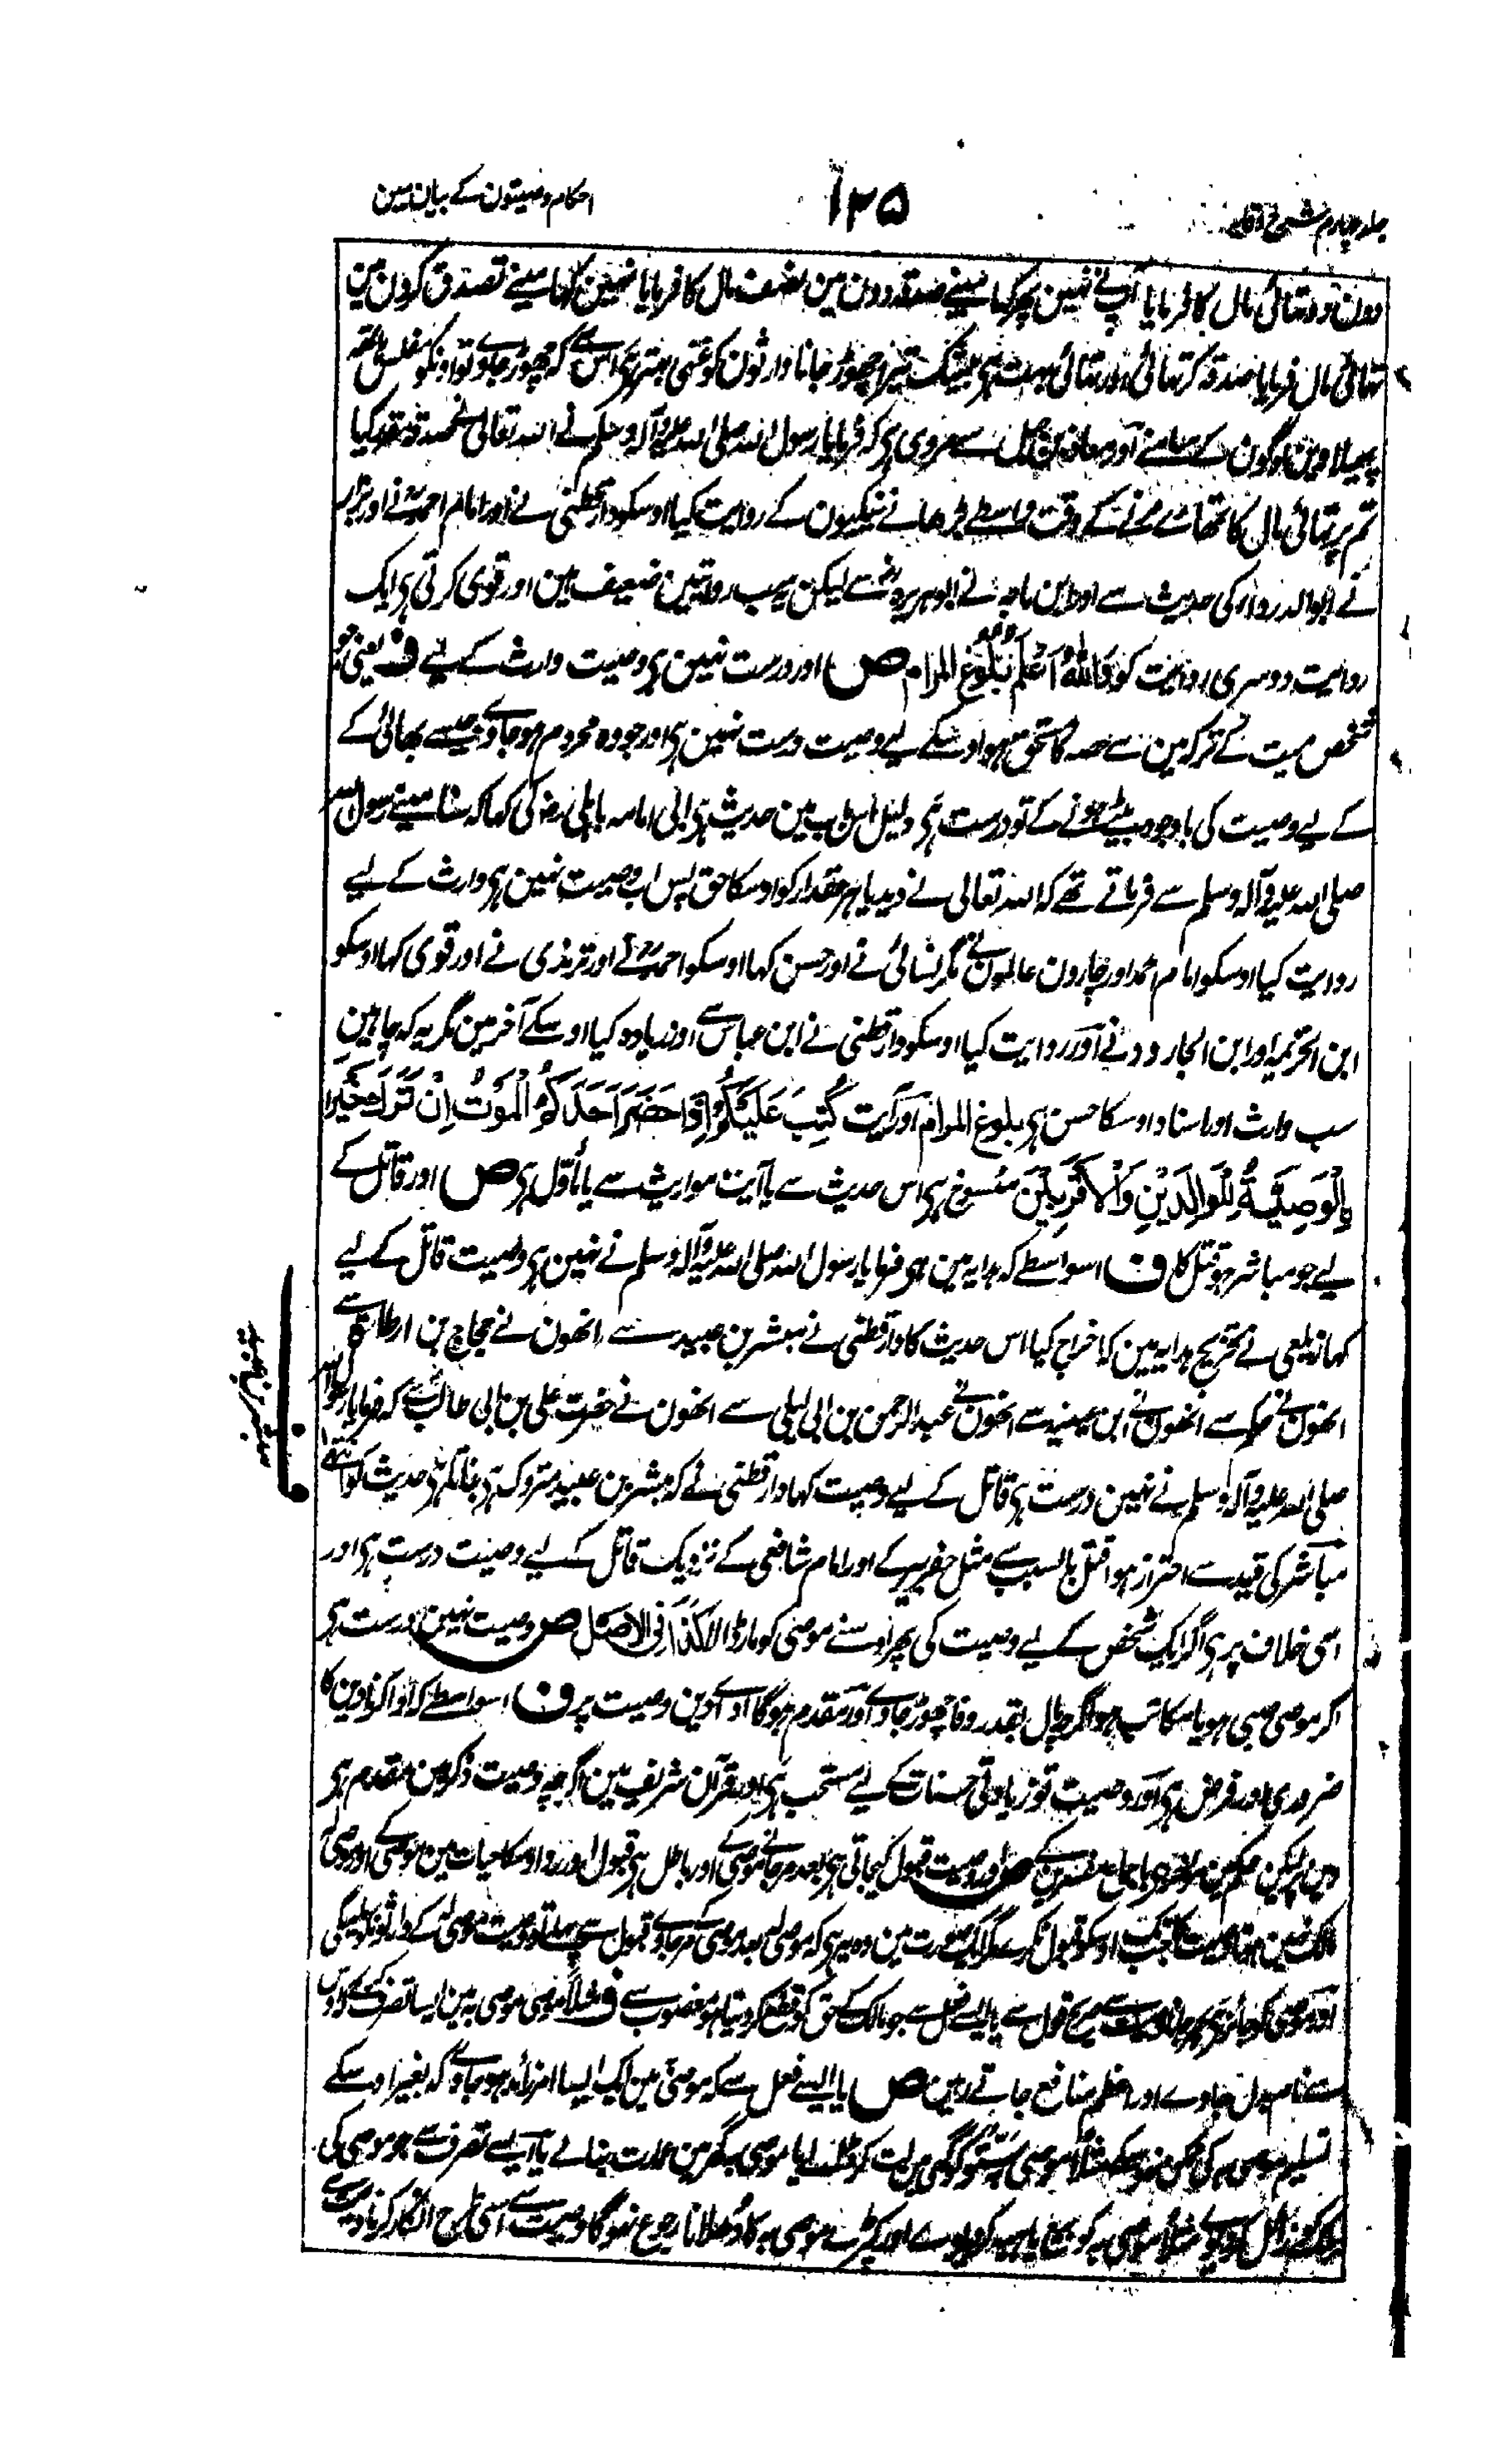 جلد چہارم شرح وقایہ
۱۲۵
احکام وصیتون کے بیان مین
دون دو تہائی مال کا فرمایا آپ نے نہین پھر کہا مینے صدقہ دون مین نصف مال کا فرمایا نہین کہا مینے تصدق کرون مین
تہائی مال فرمایا صدقہ کر تہائی اور تہائی بہت ہی بیشک تیرا چھوڑ جانا وارثون کو غنی بہتر ہی اس سے کہ چھوڑ جاوے تو اونکو مفلس
پھیلاوین لوگون کے سامنے اور معاذ بن جبل سے مروی ہی کہ فرمایا رسول اللہ صلی اللہ علیہ وآلہ وسلم نے اللہ تعالی نے صدقہ کیا
تم پر تہائی مال کا تمھارے مرنے کے وقت واسطے بڑھانے نیکیون کے روایت کیا اوسکو دارقطنی نے اور امام احمد نے اور بزار
نے ابو الدرداء کی حدیث سے اور ابن ماجہ نے ابو ہریرہ سے لیکن یہ سب روایتین ضعیف ہین اور قوی کرتی ہی ایک
روایت دوسری روایت کو واللہ اعلم بلوغ المرام ص اور درست نہین ہی وصیت وارث کے لیے ف یعنی جو
شخص میت کے ترکہ مین سے حصہ کا مستحق ہو اوسکے لیے وصیت درست نہین ہی اور جو وہ محروم ہو جاوے جیسے بھائی کے
کے لیے وصیت کی باوجود بیٹے ہونے کے تو درست ہی دلیل اس باب مین حدیث ہی ابی امامہ باہلی رض کی کہا کہ سنا مینے رسول اللہ
صلی اللہ علیہ وآلہ وسلم سے فرماتے تھے کہ اللہ تعالی نے دیدیا ہر حقدار کو اوسکا حق پس اب وصیت نہین ہی وارث کے لیے
روایت کیا اوسکو امام احمد اور چارون عالمون نے مگر نسائی نے اور حسن کہا اوسکو احمد نے اور ترمذی نے اور قوی کہا اوسکو
ابن الخزیمہ اور ابن الجارود نے اور روایت کیا اوسکو دارقطنی نے ابن عباس سے اور زیادہ کیا اوسکے آخر مین مگر یہ کہ چاہین
سب وارث اور اسناد اوسکا حسن ہی بلوغ المرام اور آیت کُتِبَ عَلَیْکُمْ اِذَا حَضَرَ اَحَدَکُمُ الْمَوْتُ اِنْ تَرَکَ خَیْرَا
اِلْوَصِیَّةُ لِلْوَالِدَیْنِ وَالْاَقْرَبِیْنَ منسوخ ہی اس حدیث سے یا آیت مواریث سے یا مأوّل ہی ص اور قاتل کے
لیے جو مباشر ہو قتل کا ف اسواسطے کہ ہدایہ مین ہو فرمایا رسول اللہ صلی اللہ علیہ وآلہ وسلم نے نہین ہی وصیت قاتل کے لیے
کہا زیلعی نے تخریج ہدایہ مین کہ اخراج کیا اس حدیث کا دارقطنی نے مبشر بن عبید سے انھون نے حجاج بن ارطاۃ سے
انھون نے حکم سے انھون نے ابن عیینہ سے انھون نے عبد الرحمن بن ابی لیلی سے انھون نے حضرت علی بن ابی طالب سے کہ فرمایا رسول اللہ
صلی اللہ علیہ وآلہ وسلم نے نہین درست ہی قاتل کے لیے وصیت کہا دارقطنی نے کہ مبشر بن عبید متروک ہی بناتا ہی حدیث کو انتہی
مباشر کی قید سے احتراز ہوا قتل بالسبب سے مثل حفر بیر کے اور امام شافعی کے نزدیک قاتل کے لیے وصیت درست ہی اور
اسی خلاف پر ہی اگر ایک شخص کے لیے وصیت کی پھر اوسنے موصی کو مار ڈالا کَذَا فِی الْاَصْل ص وصیت نہین درست ہی
اگر موصی صبی ہو یا مکاتب ہو اگرچہ مال بقدر وفا چھوڑ جاوے اور مقدم ہوگا اداے دین وصیت پر ف اسواسطے کہ ادا کرنا دین کا
ضروری اور فرض ہی اور وصیت تو زیادتی حسنات کے لیے مستحب ہی اور قرآن شریف مین اگرچہ وصیت ذکر مین مقدم ہی
دین پر لیکن حکم مین موخر ہی باجماع مفسرین کے ص اور وصیت قبول کیجاتی ہی بعد مر جانے موصی کے اور باطل ہی قبول اور رد اوسکا حیات مین موصی کے اور موصی لہ
مالک نہین ہوتا وصیت کا جب تک اوسکو قبول نکرے مگر ایک صورت مین وہ یہ ہی کہ موصی لہ بعد موصی کے مر جاوے قبول سے پہلے تو وصیت موصی لہ کے وارثون کو ملیگی
اور موصی کو جائز ہی پھر جانا وصیت سے صریح قول سے یا ایسے فعل سے جو مالک کے حق کو قطع کر دیتا ہو مغصوب سے ف مثلاً موصی موصی بہ مین ایسا تصرف کرے کہ اوس
سے نام بدل جاوے اور اعظم منافع جاتے رہین ص یا ایسے فعل سے کہ موصی بہ مین ایک ایسا امر زائد ہو جاوے کہ بغیر اوسکے
تسلیم موصی بہ کی ممکن نہو سکے مثلاً موصی بہ ستو کو گھی مین لت کر ڈالے یا موصی بہ گھر مین عمارت بنالے یا ایسے تصرف سے جو موصی کی
ملک کو زائل کر دیوے مثلاً موصی بہ کو بیچے یا ہبہ کر دیوے اور کپڑے موصی بہ کا دھلانا رجوع نہوگا وصیت سے اسی طرح انکار کرنا وصیت سے
مبشر بن عبید